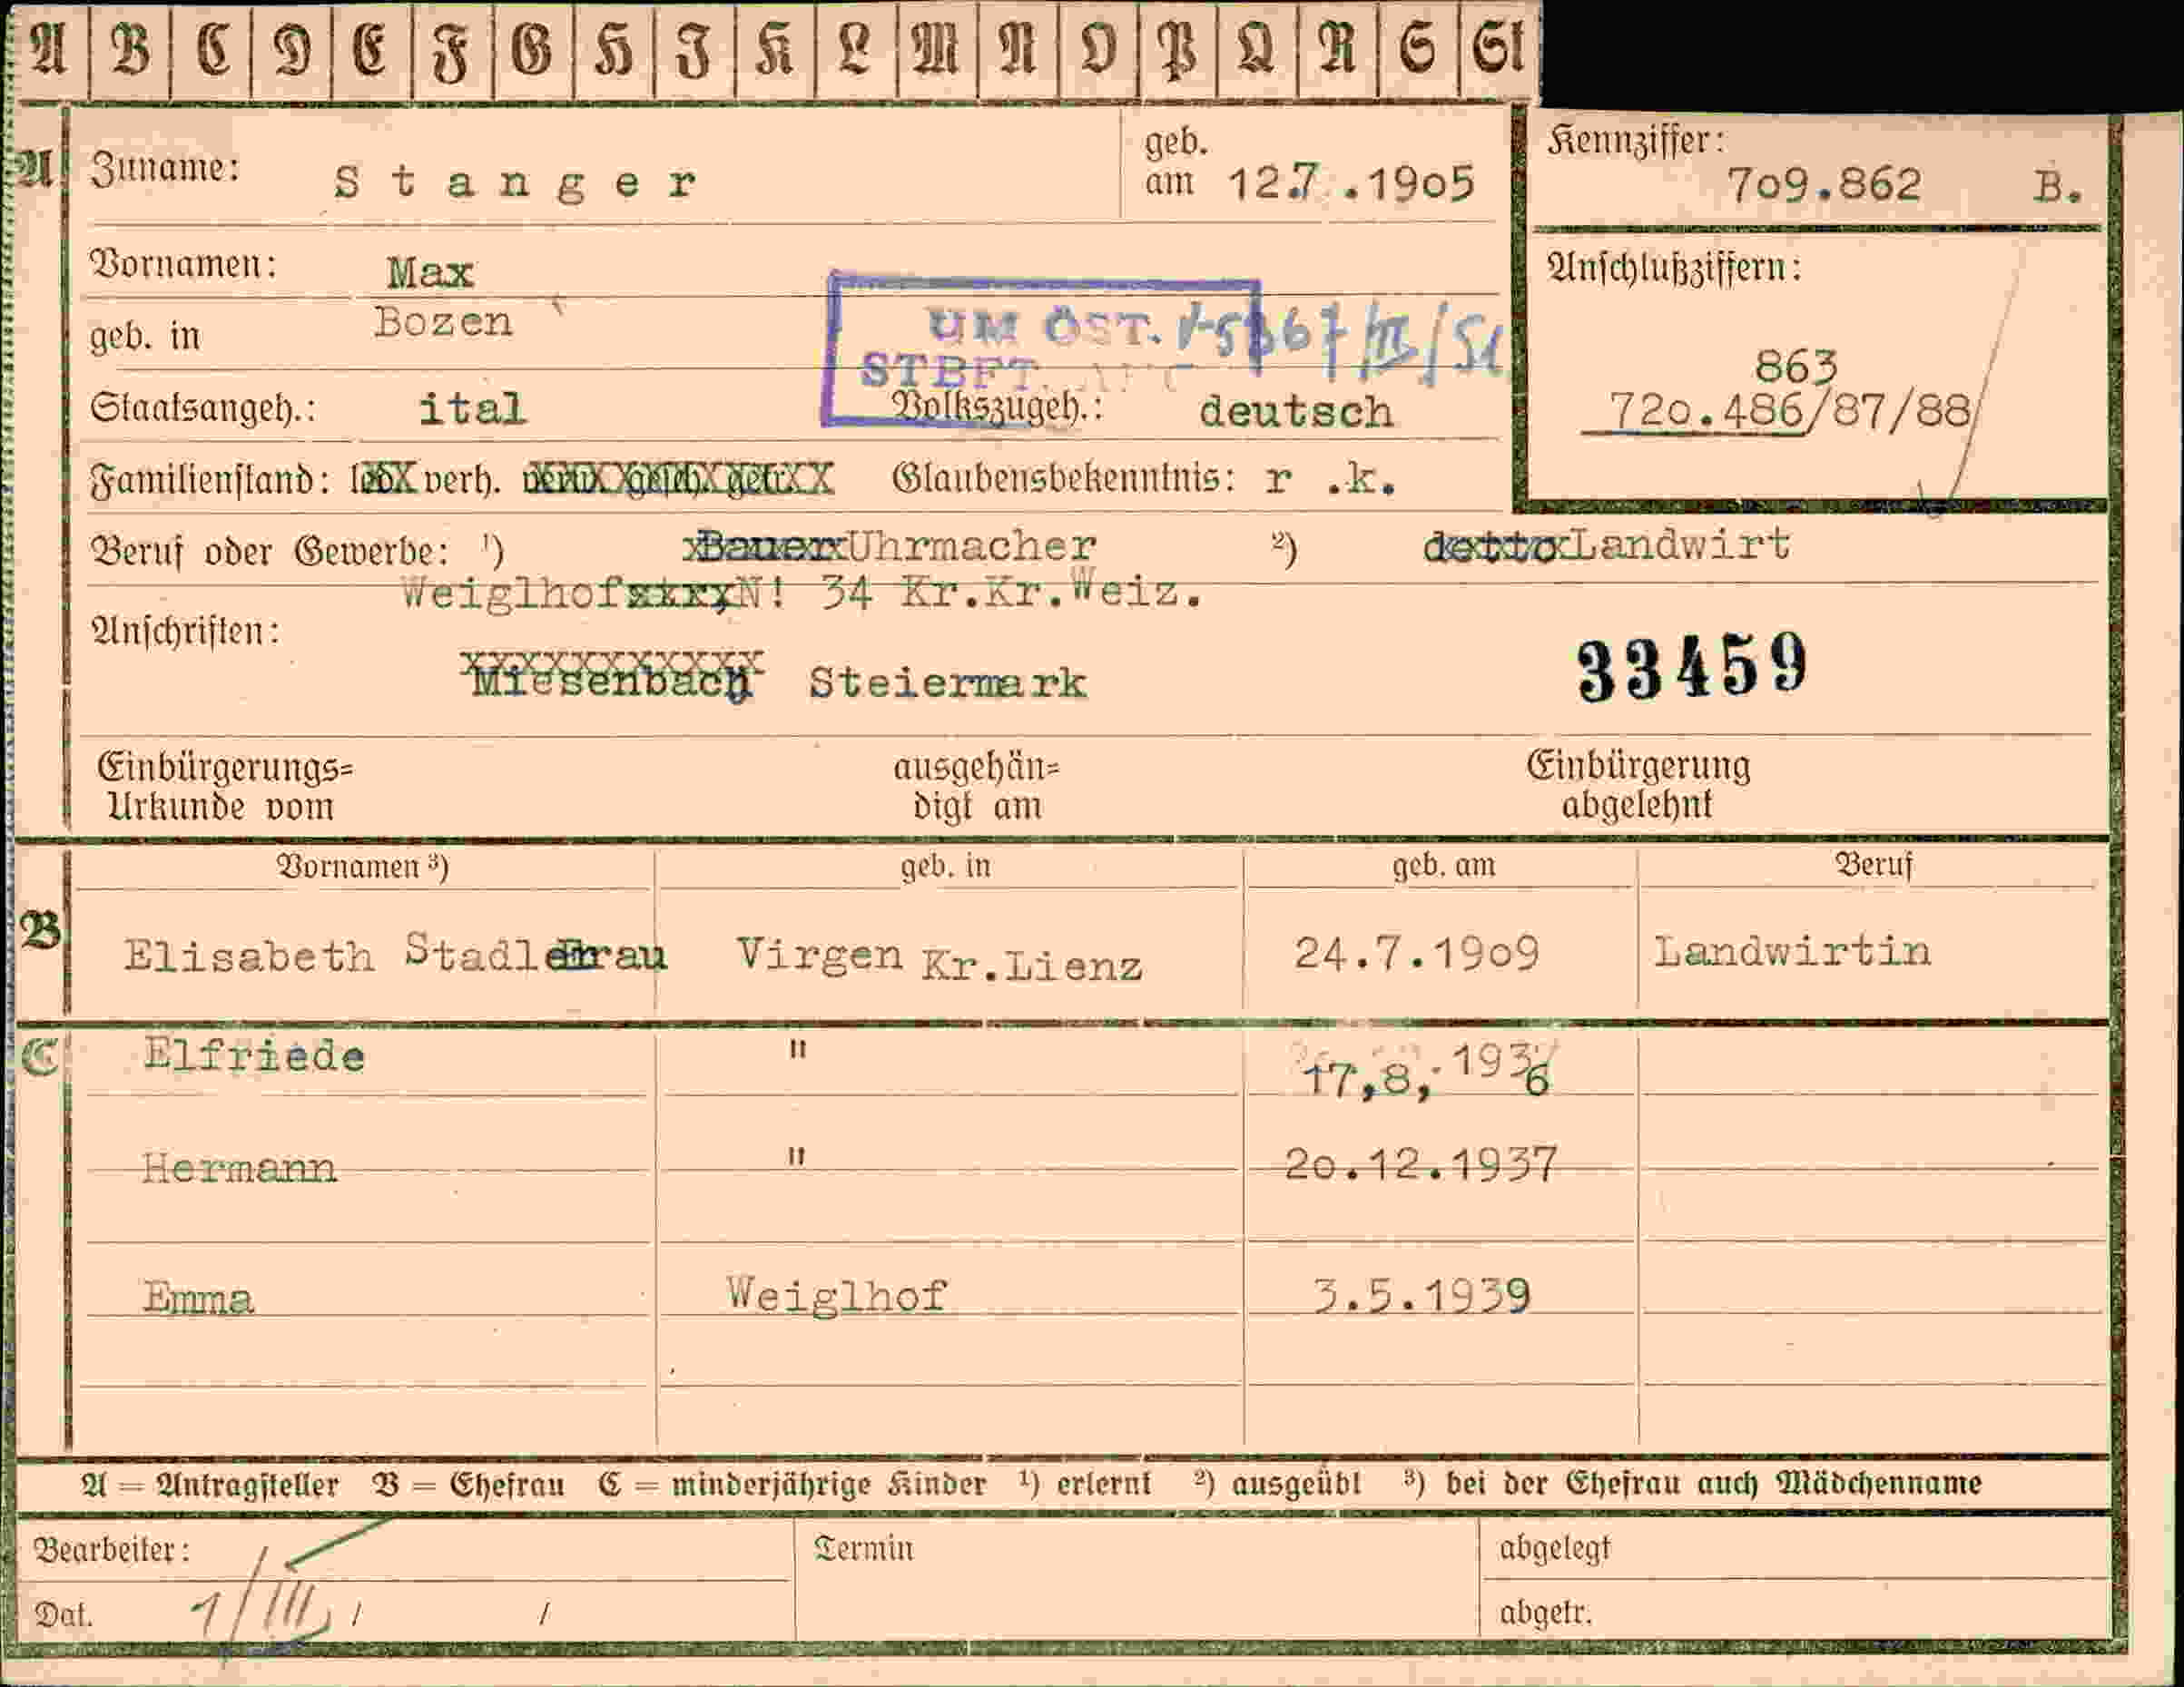 A B C D E F G H J K L M N O P Q R S St
A Zuname: Stanger geb. am 12.7.1905 Kennziffer: 709.862 B.
Vornamen: Max Anschlußziffern:
geb. in Bozen UM ÖST.
863
STBFT.
Staatsangeh.: ital Volkszugeh.: deutsch 720.486/87/88
Familienstand: verh. Glaubensbekenntnis: r .k.
Beruf oder Gewerbe: ¹) Bauer Uhrmacher ²) detto Landwirt
Weiglhof N! 34 Kr.Kr.Weiz.
Anschriften:
Miesenbach Steiermark 33459
Einbürgerungs= ausgehän= Einbürgerung
Urkunde vom digt am abgelehnt
Vornamen ³) geb. in geb. am Beruf
B Elisabeth Virgen Kr.Lienz 24.7.1909 Landwirtin
C Elfriede " 17,8,.1936
Hermann " 20.12.1937
Emma Weiglhof 3.5.1939
A = Antragsteller B = Ehefrau C = minderjährige Kinder ¹) erlernt ²) ausgeübt ³) bei der Ehefrau auch Mädchenname
Bearbeiter: Termin abgelegt
Dat. 1/III / / abgetr.